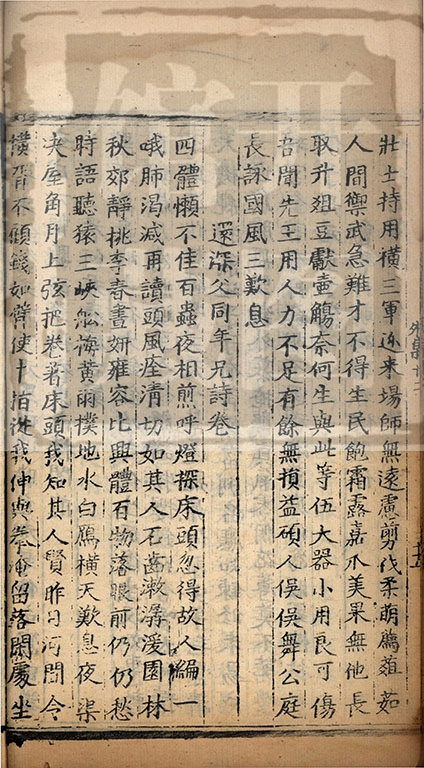 壯士持用橫三軍邇來場師無遠慮剪伐柔萌薦葅茹
人間禦武急難才不得生民飽霜露嘉爪美果無他長
取升俎豆獻壺觴奈何生與此等伍大器小用良可傷
吾聞先王用人力不足有餘無損益碩人俁俁舞公庭
長詠國風三歎息
還深父同年兄詩卷
四體懶不佳百蟲夜相煎呼燈探床頭忽得故人編一
哦肺渴減再讀頭風痊清切如其人石齒漱潺湲園林
秋郊靜桃李春晝妍雍容比興體百物落眼前仍仍愁
時語聽猿三峽船海黃雨撲地水白鴈橫天歎息夜柒
央屋角月上弦把卷著床頭我知其人賢昨日河間令
橫胷不顧錢如臂使十指從我伸與拳淹留落閑處坐
外集十二